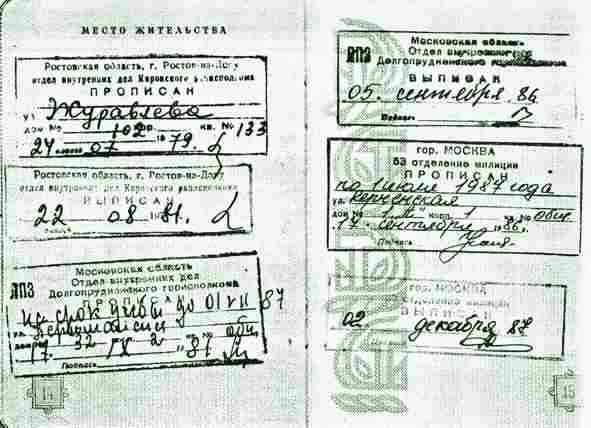 МЕСТО ЖИТЕЛЬСТВА
Ростовская область, г. Ростов-на-Дону
отдел внутренних дел Кировского райисполкома
ПРОПИСАН
ул. Журавлева
дом № 102 кор. кв. № 133
24 07 1979
Ростовская область, г. Ростов-на-Дону
отдел внутренних дел Кировского райисполкома
ВЫПИСАН
22 08 1981.
Московская область
Отдел внутренних дел
ЛПЗ Долгопрудненского горисполкома
ПРОПИСАН
на срок учебы до 01 VII 87
ул. Первомайская
дом 32 2 кв. № общ
17. IX 81
Подпись
14
Московская область
ЛПЗ Отдел внутренних дел
Долгопрудненского горисполкома
ВЫПИСАН
05. сентября. 86
Подпись
гор. МОСКВА
53 отделение милиции
ПРОПИСАН
по 1 июля 1987 года
ул. Керченская
дом № 1 корп. 1 кв. № общ.
17. сентября 86г.
Подпись
гор. МОСКВА
отделение милиции
ВЫПИСАН
02 декабря 87
15